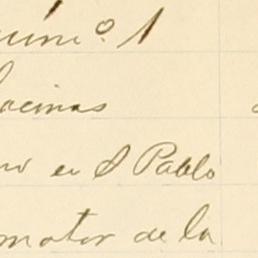 núm.º 1
ocinas
en S Pablo
motor de la